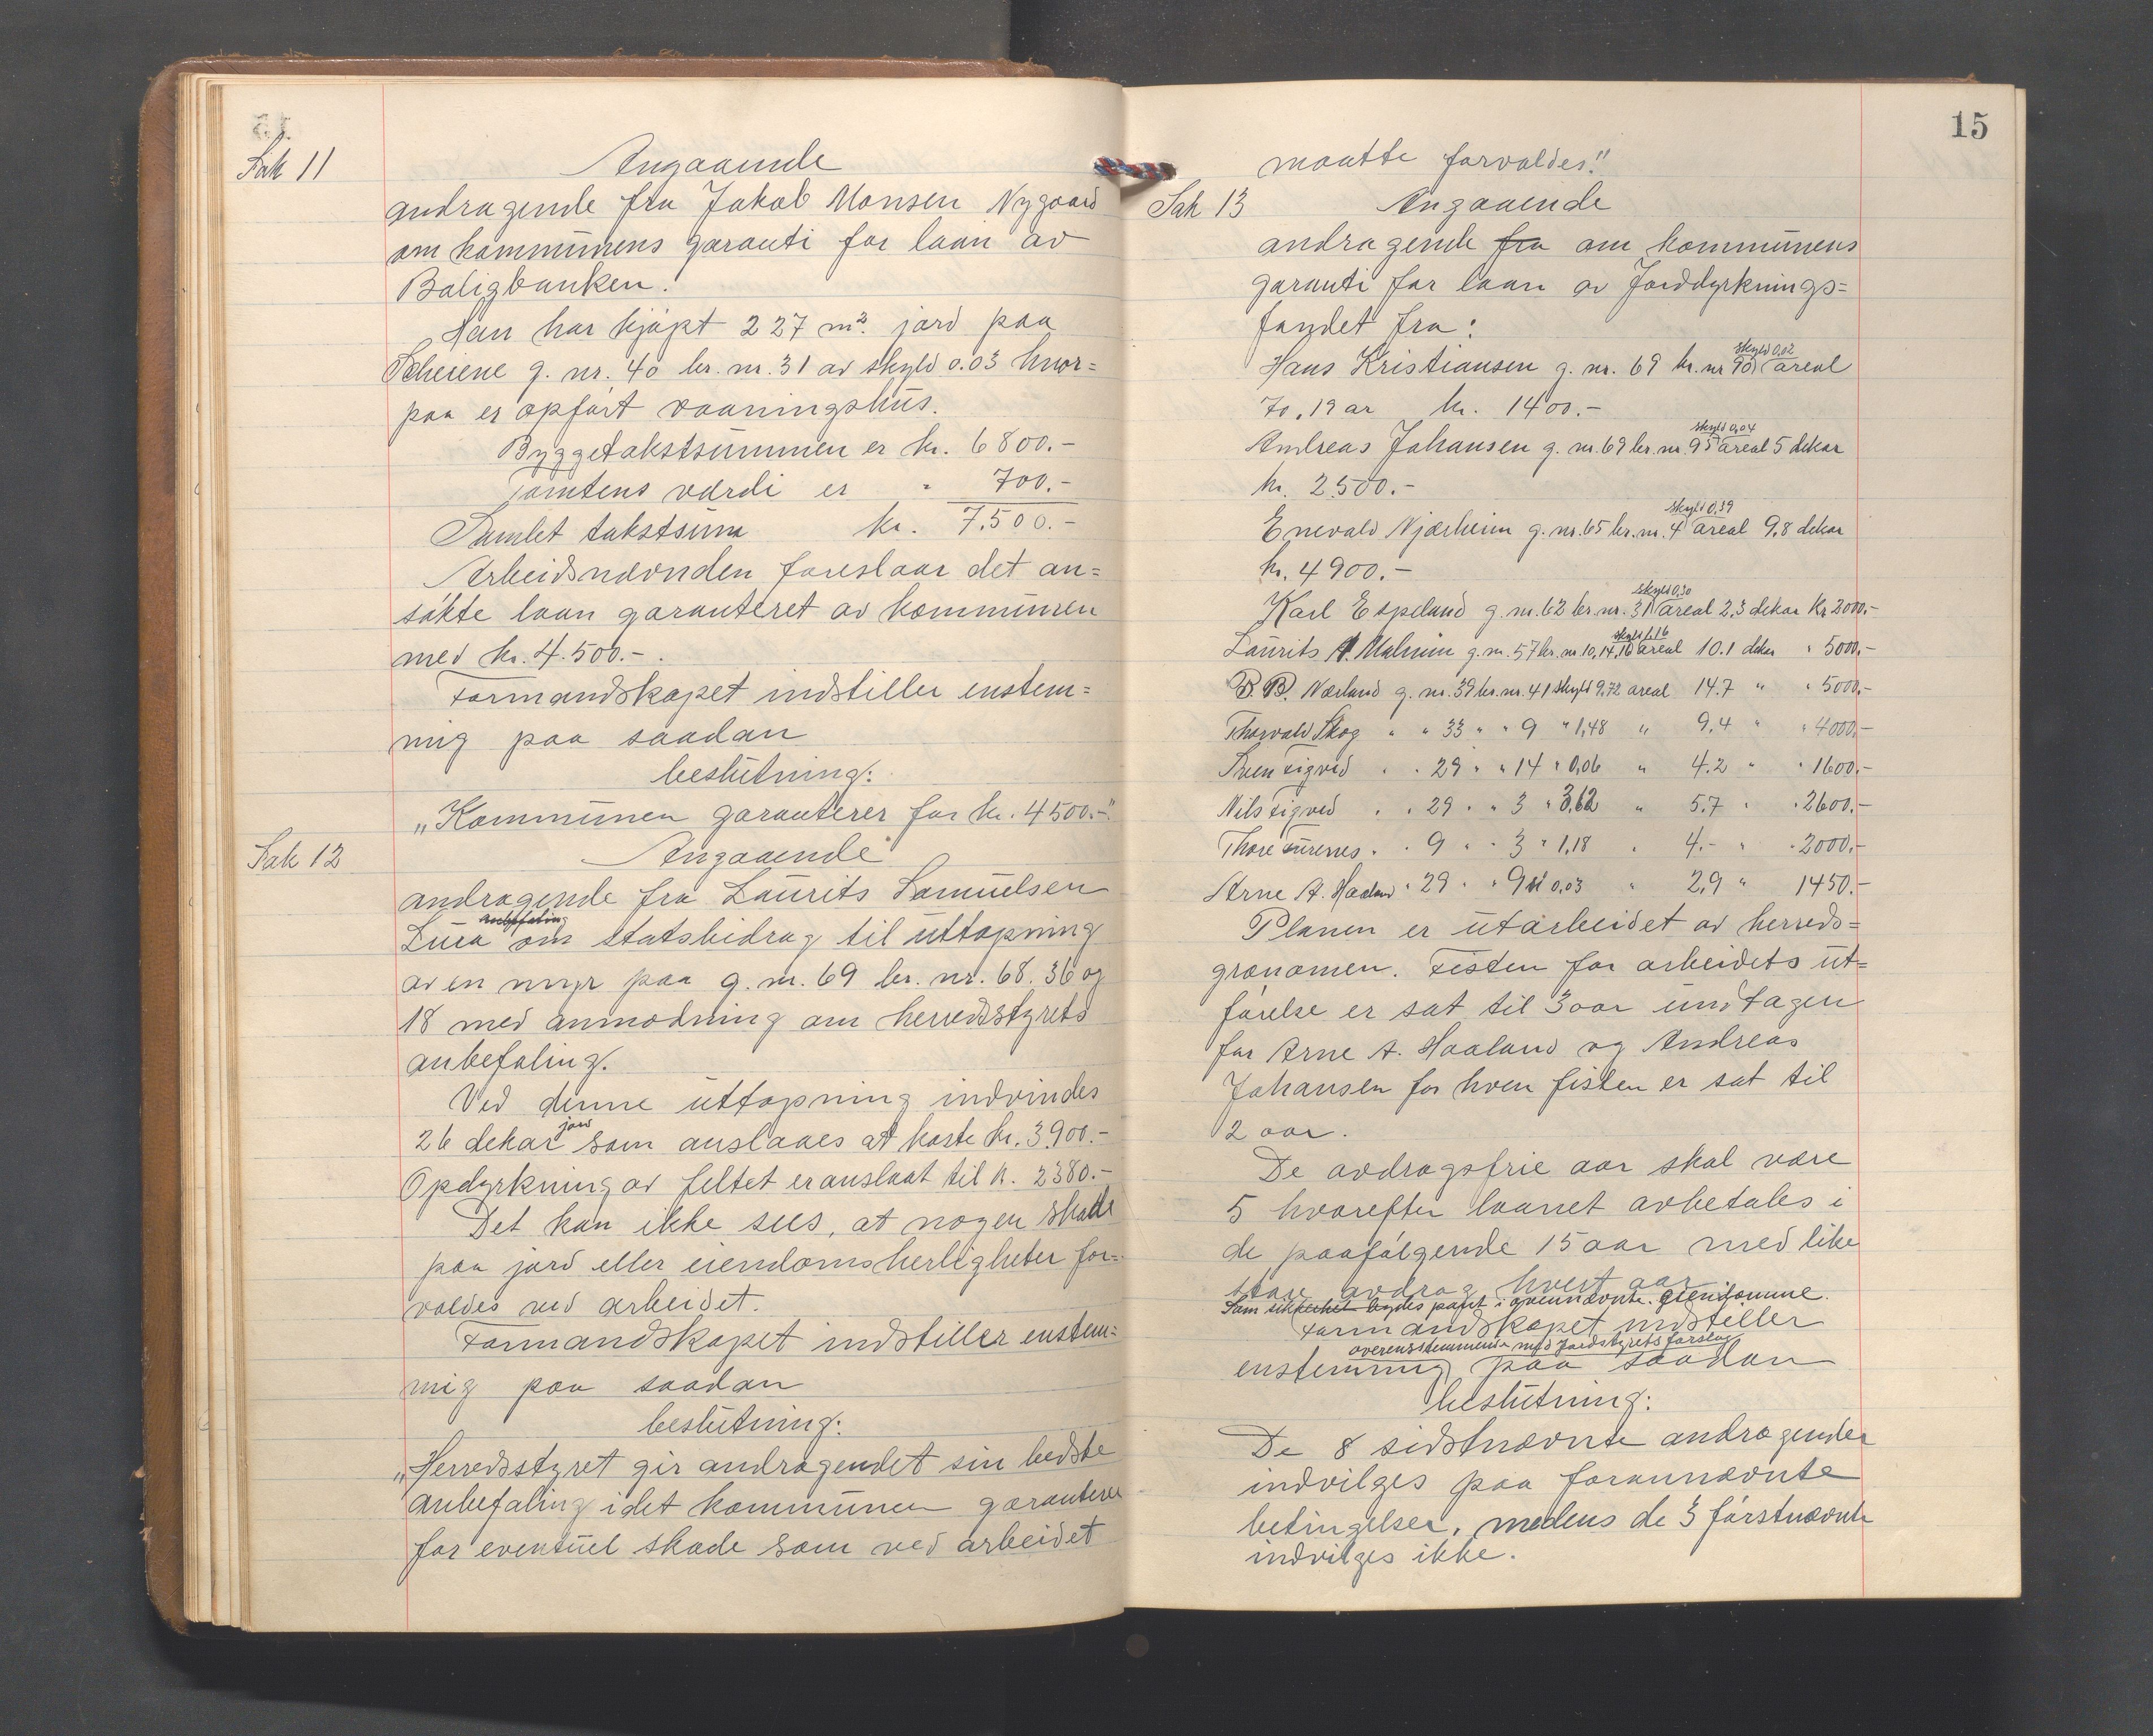 Sak 11
Angaaende
andragende fra Jakob Monsen Nygaard
om kommunens garanti for laan av
Boligbanken.
Han har kjøpt 227 m². jord paa
Scheiene g. nr. 40 br. nr. 31 av skyld 0.03 hvor=
paa er opført vaaningshus.
Byggetakstsummen er kr. 6800.-
Tomtens værdi er " 700.-
Samlet takstsum kr. 7.500.-
Arbeidsnævnden foreslaar det an=
søkte laan garanteret av kommunen
med kr. 4.500.-.
Formandskapet indstiller enstem=
mig paa saadan
beslutning:
„Kommunen garanterer for kr. 4500.-"
Sak 12
Angaaende
andragende fra Laurits Samuelsen
anbefaling
Lura om statsbidrag til uttapning
av en myr paa g. nr. 69 br. nr. 68. 36 og
18 med anmodning om herredsstyrets
anbefaling.
Ved denne uttapning indvindes
jord
26 dekar som anslaaes at koste kr. 3.900.-
Opdyrkning av feltet er anslaat til k. 2380.-
Det kan ikke sees, at nogen skade
paa jord eller eiendomsherligheter for=
voldes ved arbeidet.
Formandskapet indstiller enstem=
mig paa saadan
beslutning:
„Herredsstyret gir andragendet sin bedste
anbefaling idet kommunen garanterer
for eventuel skade som ved arbeidet
15
maatte forvoldes."
Sak 13
Angaaende
andragende fra om kommunens
garanti for laan av Jorddyrknings=
fondet fra:
skyld 0,02
Hans Kristiansen g. nr. 69 br. nr 90 areal
70,19 ar kr. 1400.-
skyld 0,04
Andreas Johansen g. nr. 69 br. nr. 95 areal 5 dekar
kr. 2.500.-
skyld 0,39
Enevald Njærheim g. nr. 65 br. nr. 4 areal 9,8 dekar
kr. 4900.-
skyld 0,30
Karl Espeland g. nr. 62 br. nr. 31 areal 2,3 dekar Kr. 2000.-
skyld 1,16
Laurits A. Malmin g. nr. 57 br. nr. 10,14,16 areal 10.1 dekar " 5000.-
B. B. Nærland g. nr. 39 br. nr. 41 skyld 9,72 areal 14.7 " " 5000.-
Thorvald Skog " " 33 " " 9 " 1,48 " 9,4 " " 4000.-
Sven Sigved " " 29 " " 14 " 0,06 " 4.2 " " 1600.-
Nils Sigved " " 29 " " 3 " 3,62 " 5.7 " " 2600.-
Thore " " 9 " " 3 " 1,18 " 4.- " " 2000.-
Arne A. Haaland " 29 " " 0,03 " 2,9 " 1450.-
Planen er utarbeidet av herreds=
gronomen. Fristen for arbeidets ut=
førelse er sat til 3 aar undtagen
for Arne A. Haaland og Andreas
Johansen for hvem fisten er sat til
2 aar.
De avdragsfrie aar skal være
5 hvorefter laanet avbetales i
de paafølgende 15 aar med like
store avdrag hvert aar
Som sikkerhet bydes pant i ovennævnte eiendomme.
Formandskapet indstiller
overensstemmende med Jordstyrets forslag
enstemmig paa saadan
beslutning:
De 8 sidstnævnte andragender
indvilges paa forannævnte
betingelser, medens de 3 førstnævnte
indvilges ikke.